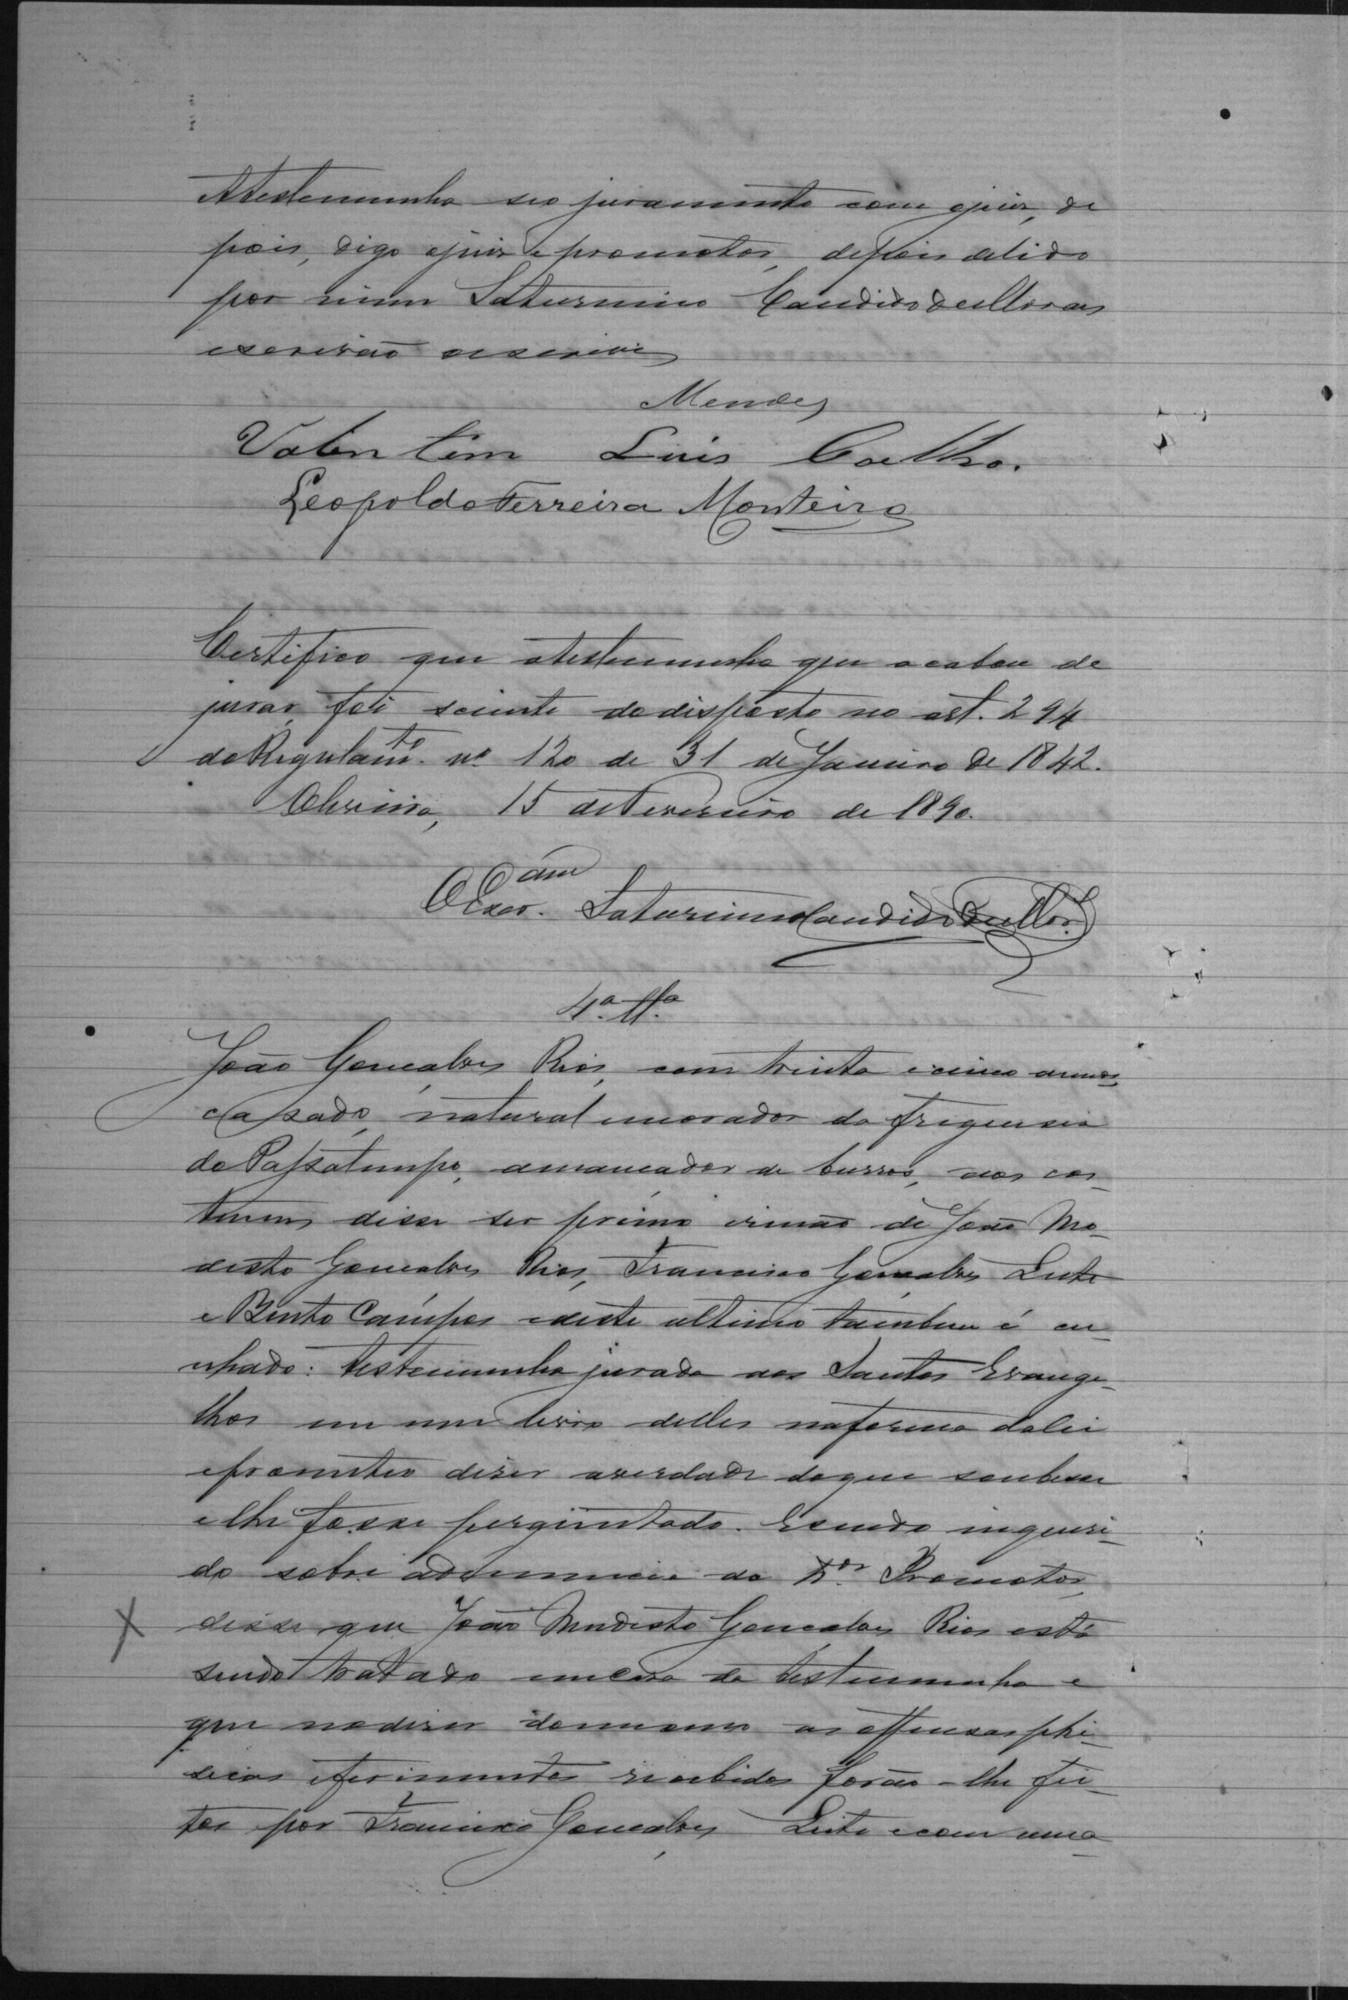 A testemunha seo juramento com ojuiz, de
pois, digo ojuiz e promotor, depois delido
por mim Saturnino Candido de Moraes
escrivão oescrivi
Mendes
Valentim Luis Coelho.
Leopoldo Ferreira Monteiro
Certifico que atestemunha que acabou de
jurar, foi sciente dodisposto no art. 294
do Regulamto. nº 120 de 31 de Janeiro de 1842.
Oliveira, 15 de Fevereiro de 1890.
O Escram. Saturnino Candido de Mor.
4.ª Ttª
João Gonçalves Rios, com trinta e cinco annos,
casado, natural emorador da freguesia
do Passatempo, amançador de burros, aos cos-
tumes disse ser primo irmão de João Mo-
desto Gonçalves Rios, Francisco Gonçalves Leite
e Bento Campos edeste ultimo tambem é cu-
nhado: testemunha jurada aos Santos Evange-
lhos em um livro delles naforma dalei
eprometteo diser averdade doque soubesse
e lhe fosse perguntado. Esendo inqueri-
do sobre adenuncia do Dr. Promotor,
disse que João Modesto Gonçalves Rios está
sendo tratado emcasa da testemunha e
que nodiser domesmo as offensas phi-
sicas eferimentos recebidos forão-lhe fei-
tos por Francisco Gonçalves Leite ecom uma